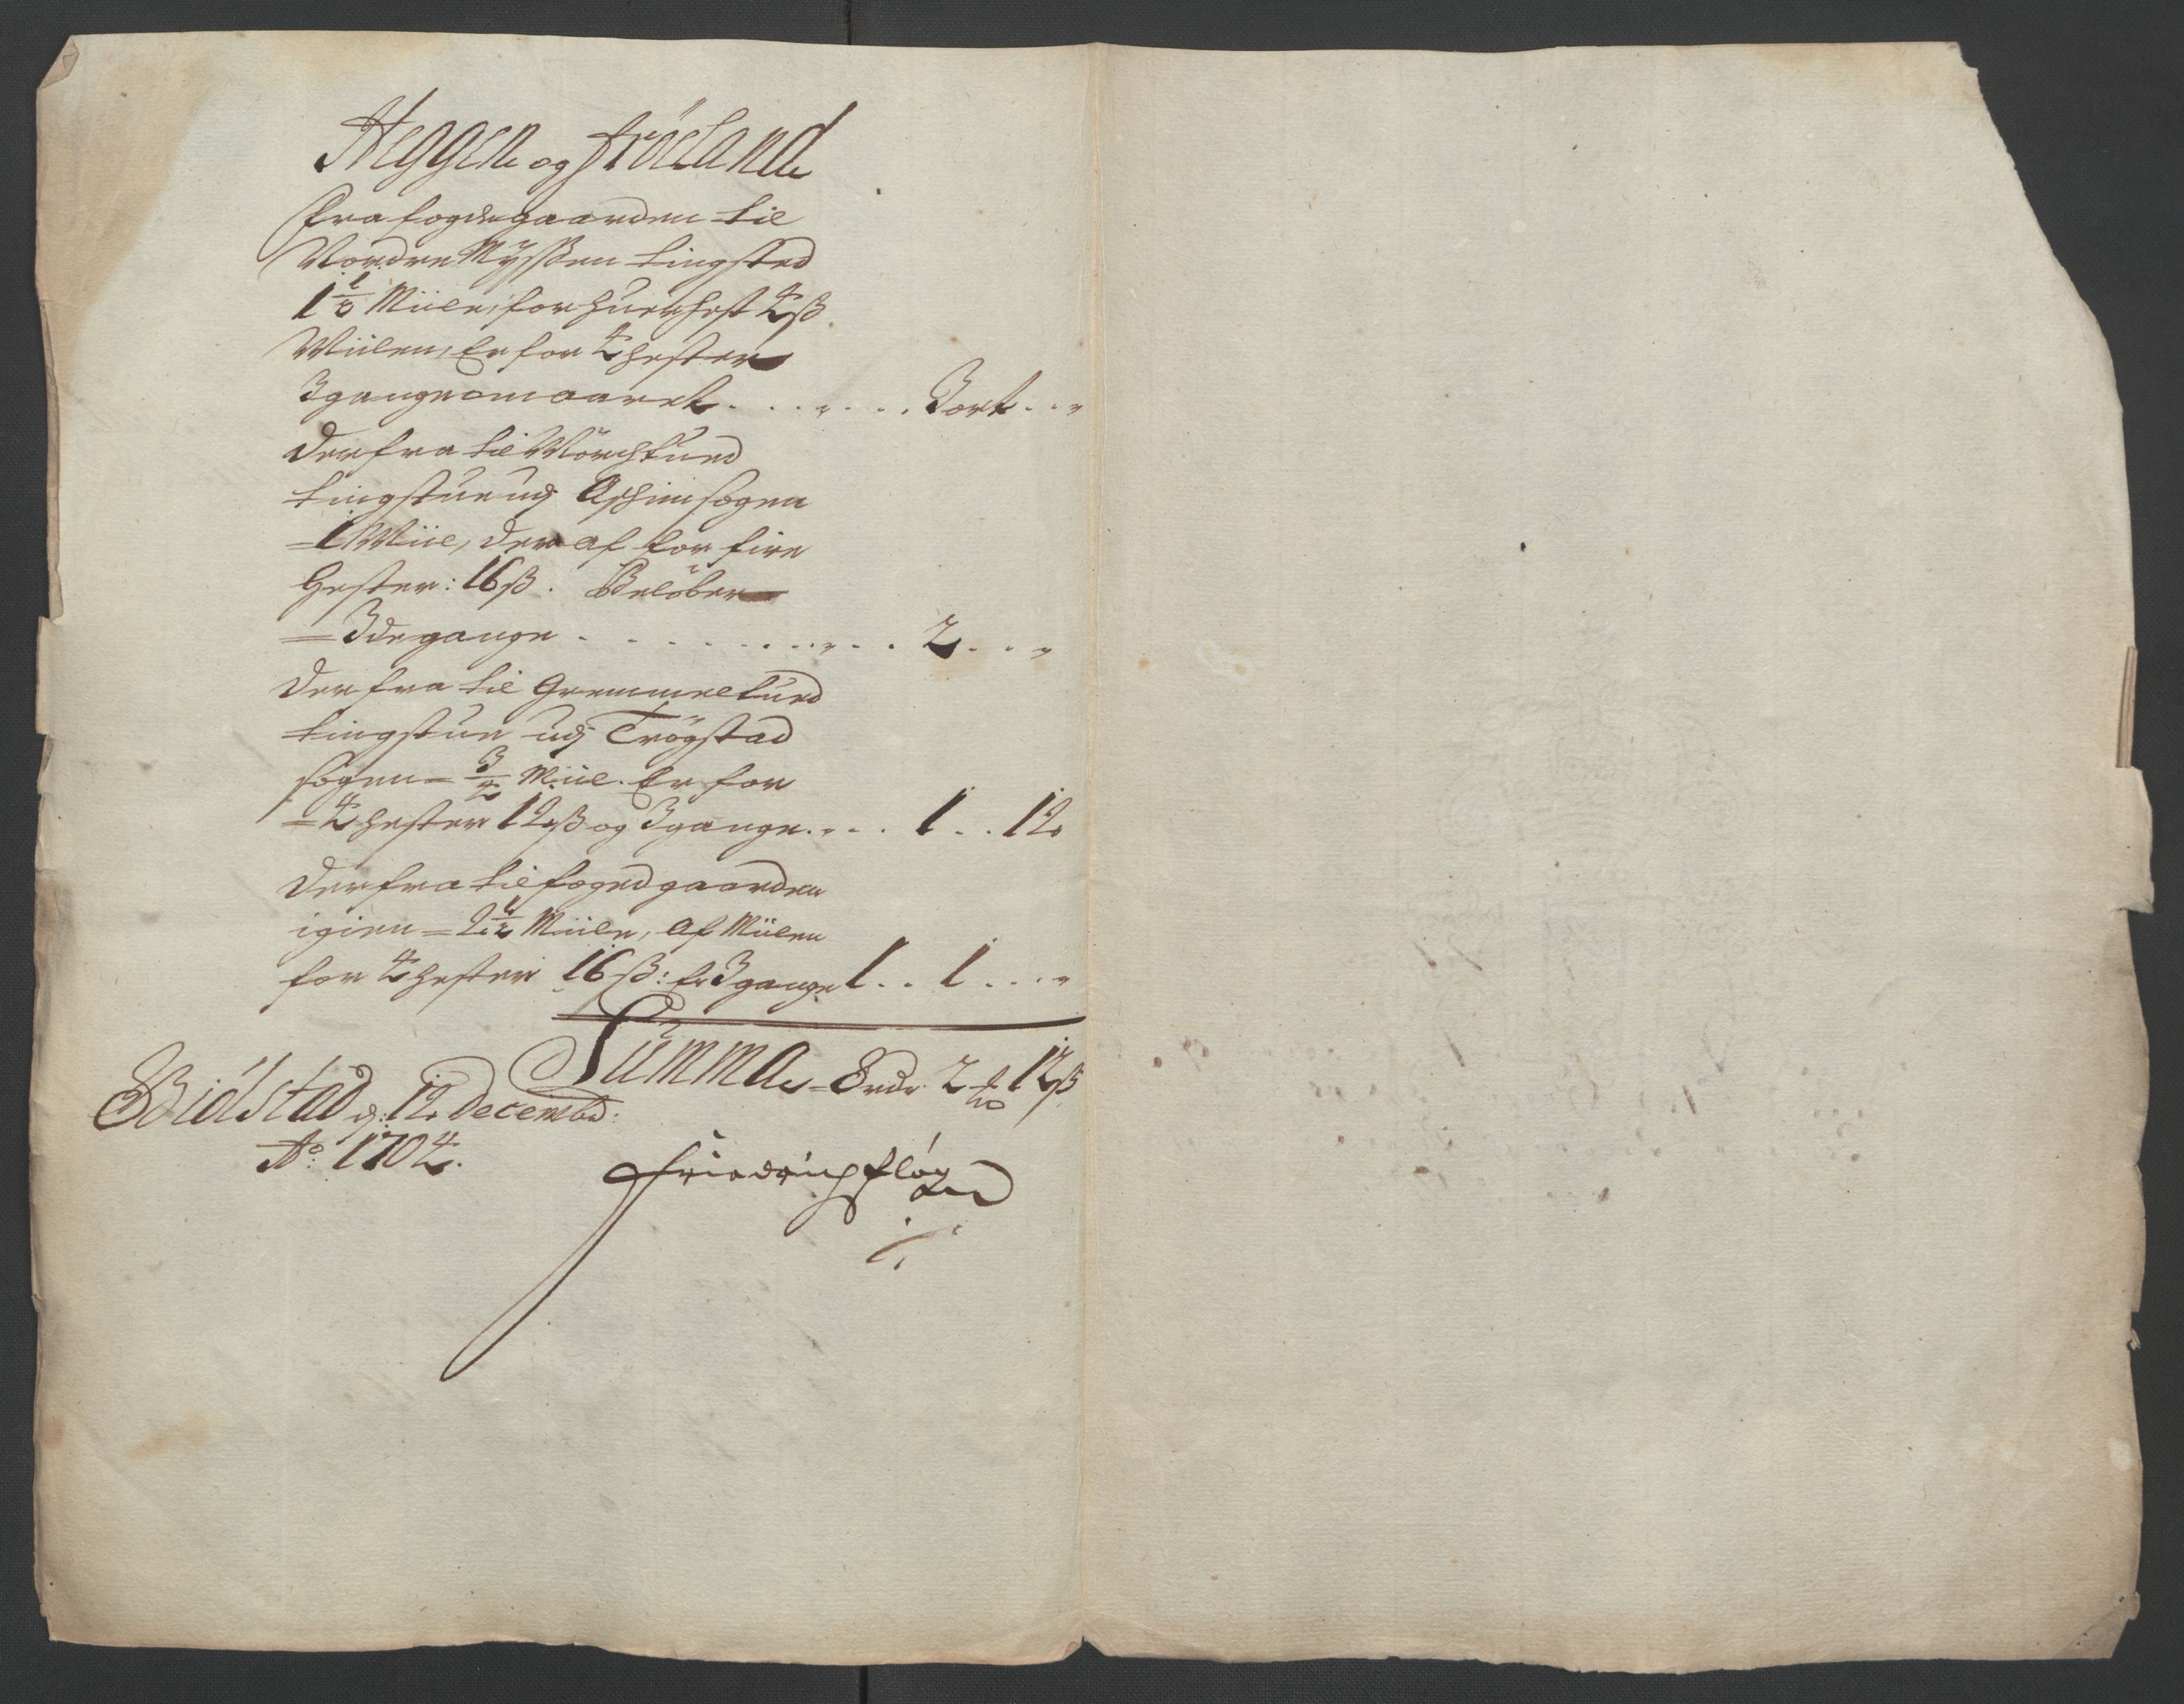 Heggen og Fröeland
Fra fogdegaarden til
Nordre Mÿssen tingsted
1½ Miile, for huer hest 4 ß
Miilen, Er for 4 hester
3 gange om aaret . . . . . . . 3 ort . . „
Derfra til Mörch tued
tingstue udj Aschim sogen
= 1 Miil, Deraf for fire
hester: 16 ß. Belöber
= 3de gange . . . . . . . . . . 2 . . . „
Derfra til Gremmeltued
tingstue udj Trögstad
sogen = ¾ Miil. Er for
= 4 hester 12 ß og 3 gange . . . . 1 . . 12
Derfra til fogedgaarden
igien = 2½ Miile, af Miilen
for 4 hester 16 ß: Er 3 gange 1 . . 1 . . . „
Summa = 8 rdr 2 12 ß
d: 12 Decembr:
Ao: 1704.
Friedrich